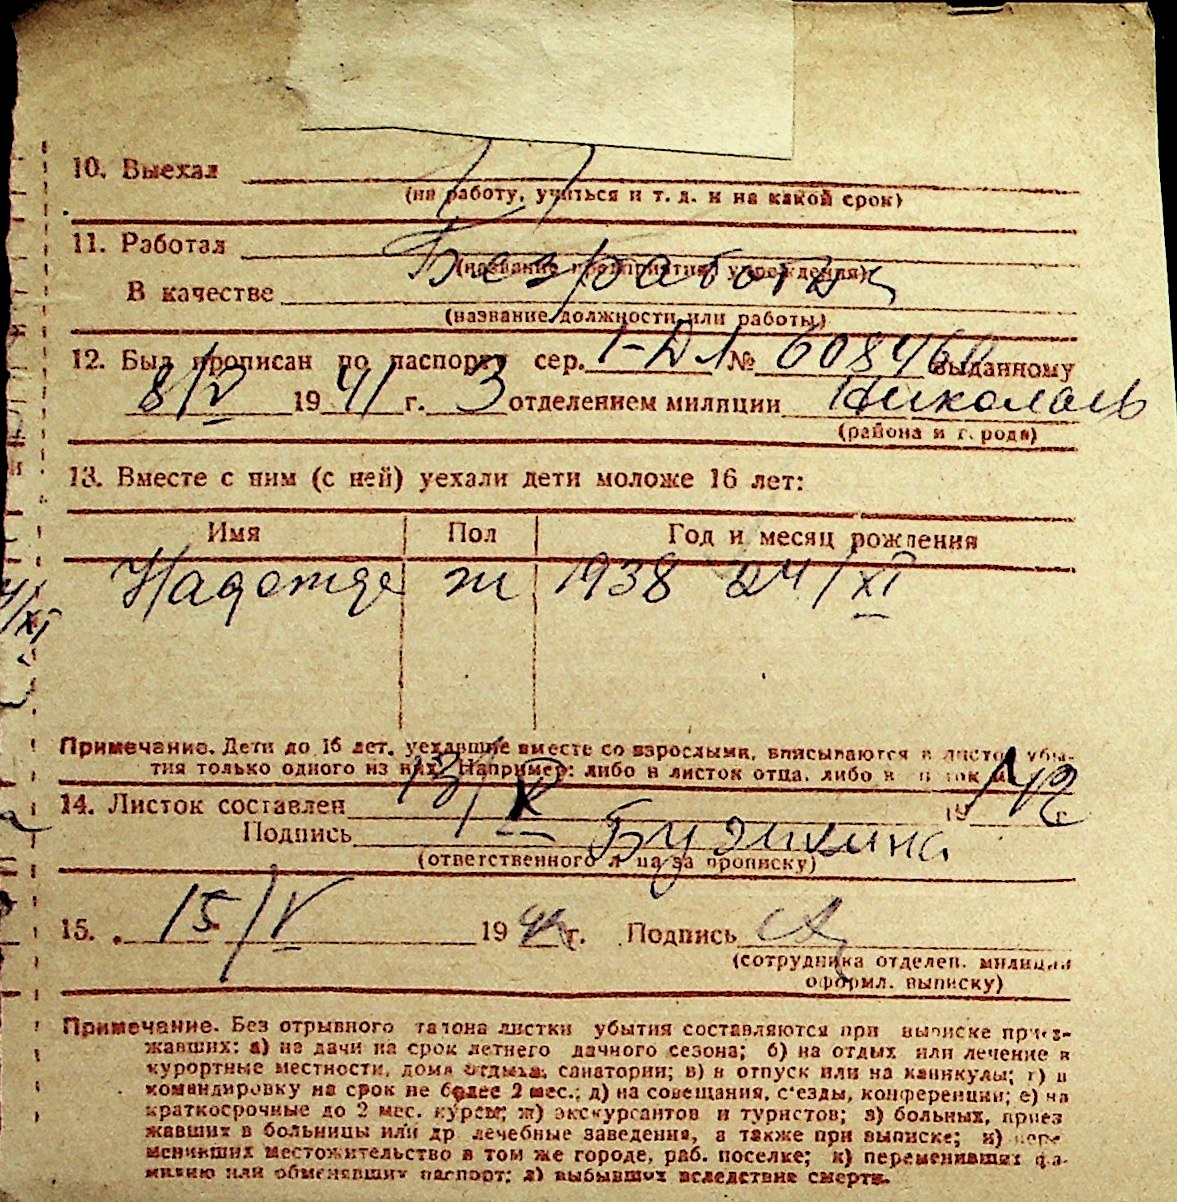 10. Выехал
(на работу, учиться и т. д. и на какой срок)
11. Работал Безработн
(название предприятия, учреждения)
В качестве
(название должности или работы)
12. Был прописан по паспорту сер. 1-ДЛ № 608460 выданному
8/V 1941 г. 3 отделением милиции Николаев
(района и города)
13. Вместе с ним (с ней) уехали дети моложе 16 лет:
Имя Пол Год и месяц рождения
Надежда ж 1938 24/XI
Примечание. Дети до 16 лет, уехавшие вместе со взрослыми, вписываются в листок убы-
тия только одного из них. Например: либо в листок отца, либо в листок м
14. Листок составлен 13/V 1942 г.
Подпись
(ответственного лица за прописку)
15. 15/V 1942 г. Подпись
(сотрудника отделен. милиции
оформл. выписку)
Примечание. Без отрывного талона листки убытия составляются при выписке приез-
жавших: а) на дачи на срок летнего дачного сезона; б) на отдых или лечение в
курортные местности, дома отдыха, санатории; в) в отпуск или на каникулы; г) в
командировку на срок не более 2 мес.; д) на совещания, с'езды, конференции; е) на
краткосрочные до 2 мес. курсы; ж) экскурсантов и туристов; з) больных, приез
жавших в больницы или др лечебные заведения, а также при выписке; и) пере
менивших местожительство в том же городе, раб. поселке; к) переменивших фа-
милию или обменявших паспорт; л) выбывших вследствие смерти.